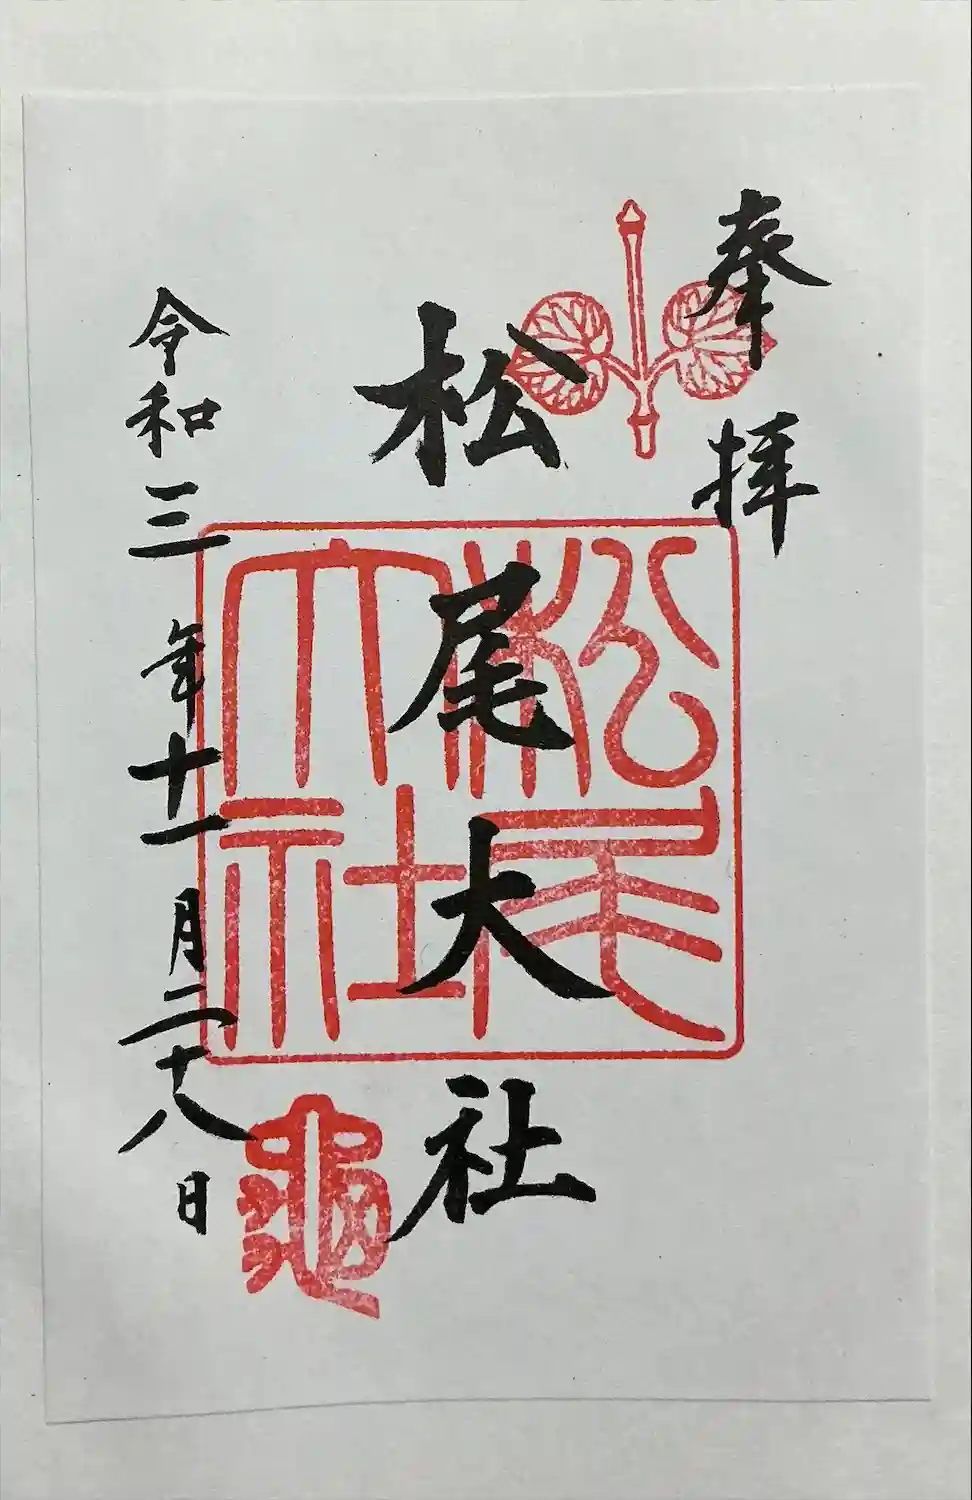 奉拝
松尾大社
松尾大社
令和三年十一月二十八日
亀